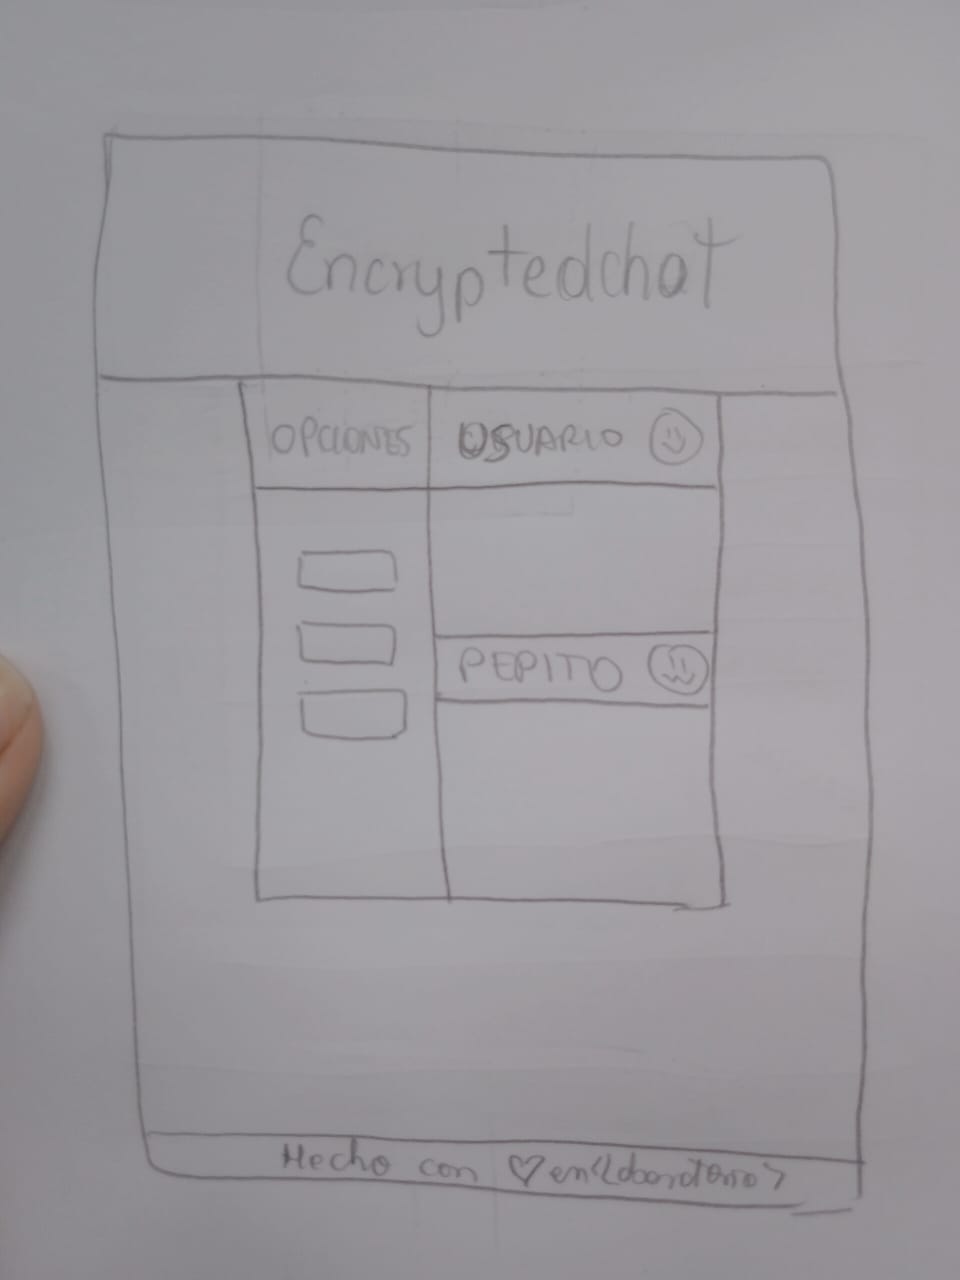 Encryptedchat
OPCIONES USUARIO
PEPITO
Hecho con ♡ en <Laboratorio>